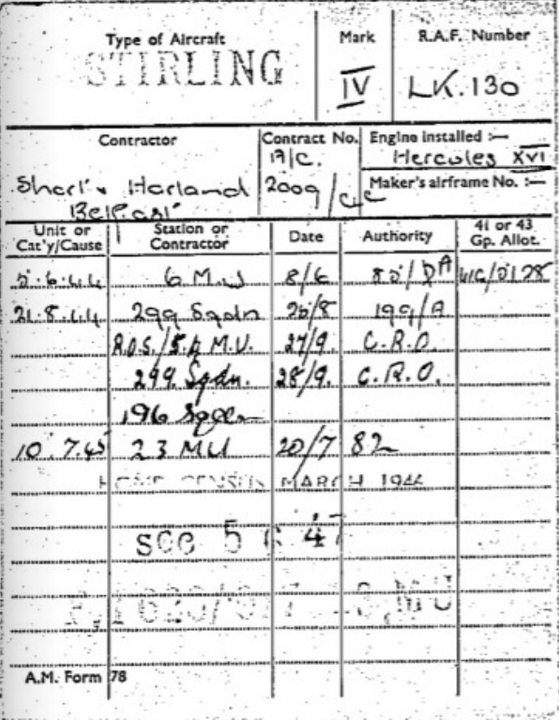 Type of Aircraft
STIRLING
Mark
IV
R.A.F. Number
LK.130
Contractor
Short & Harland
Belfast
Contract No.
A/C.
2009/C4C
Engine installed :—
Hercules XVI
Maker's airframe No. :—
Unit or Cat'y/Cause Station or Contractor Date Authority 41 or 43 Gp. Allot.
6 M.U 8/6
21.8.44 299 Sqdn 26/8 199/A
R.O.S./ M.U. 27/9. C.R.O.
299. Sqdn. 28/9. C.R.O.
196 Sqdn
10.7.45 23 MU 20/7 82
HOME CENSUS MARCH 1946
SOC 5 6 47
MU
A.M. Form 78